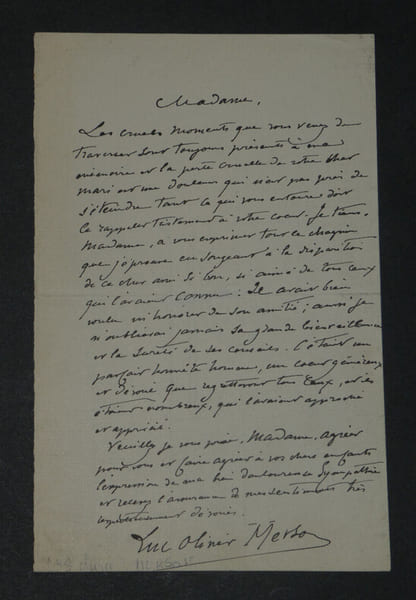 Madame,
Les cruels moments que vous venez de
traverser sont toujours présents à ma
mémoire et la perte cruelle de votre cher
mari est une douleur qui n'est pas près de
s'éteindre tant ce qui vous entoure doit
le rappeler tristement à votre cœur. Je tiens,
Madame, à vous exprimer tout le chagrin
que j'éprouve en songeant à la disparition
de ce cher ami si bon, si aimé de tous ceux
qui l'avaient connu. Il avait bien
voulu m'honorer de son amitié ; aussi je
n'oublierai jamais sa grande bienveillance
et la sureté de ses conseils. C'était un
parfait honnête homme, un cœur généreux
et dévoué que regretteront tous ceux, et ils
étaient nombreux, qui l'avaient approché
et apprécié.
Veuillez je vous prie, Madame, agréer
pour vous et faire agréer à vos chers enfants
l'expression de ma bien douloureuse sympathie
et recevez l'assurance de mes sentiments très
respectueusement dévoués.
Luc Olivier Merson